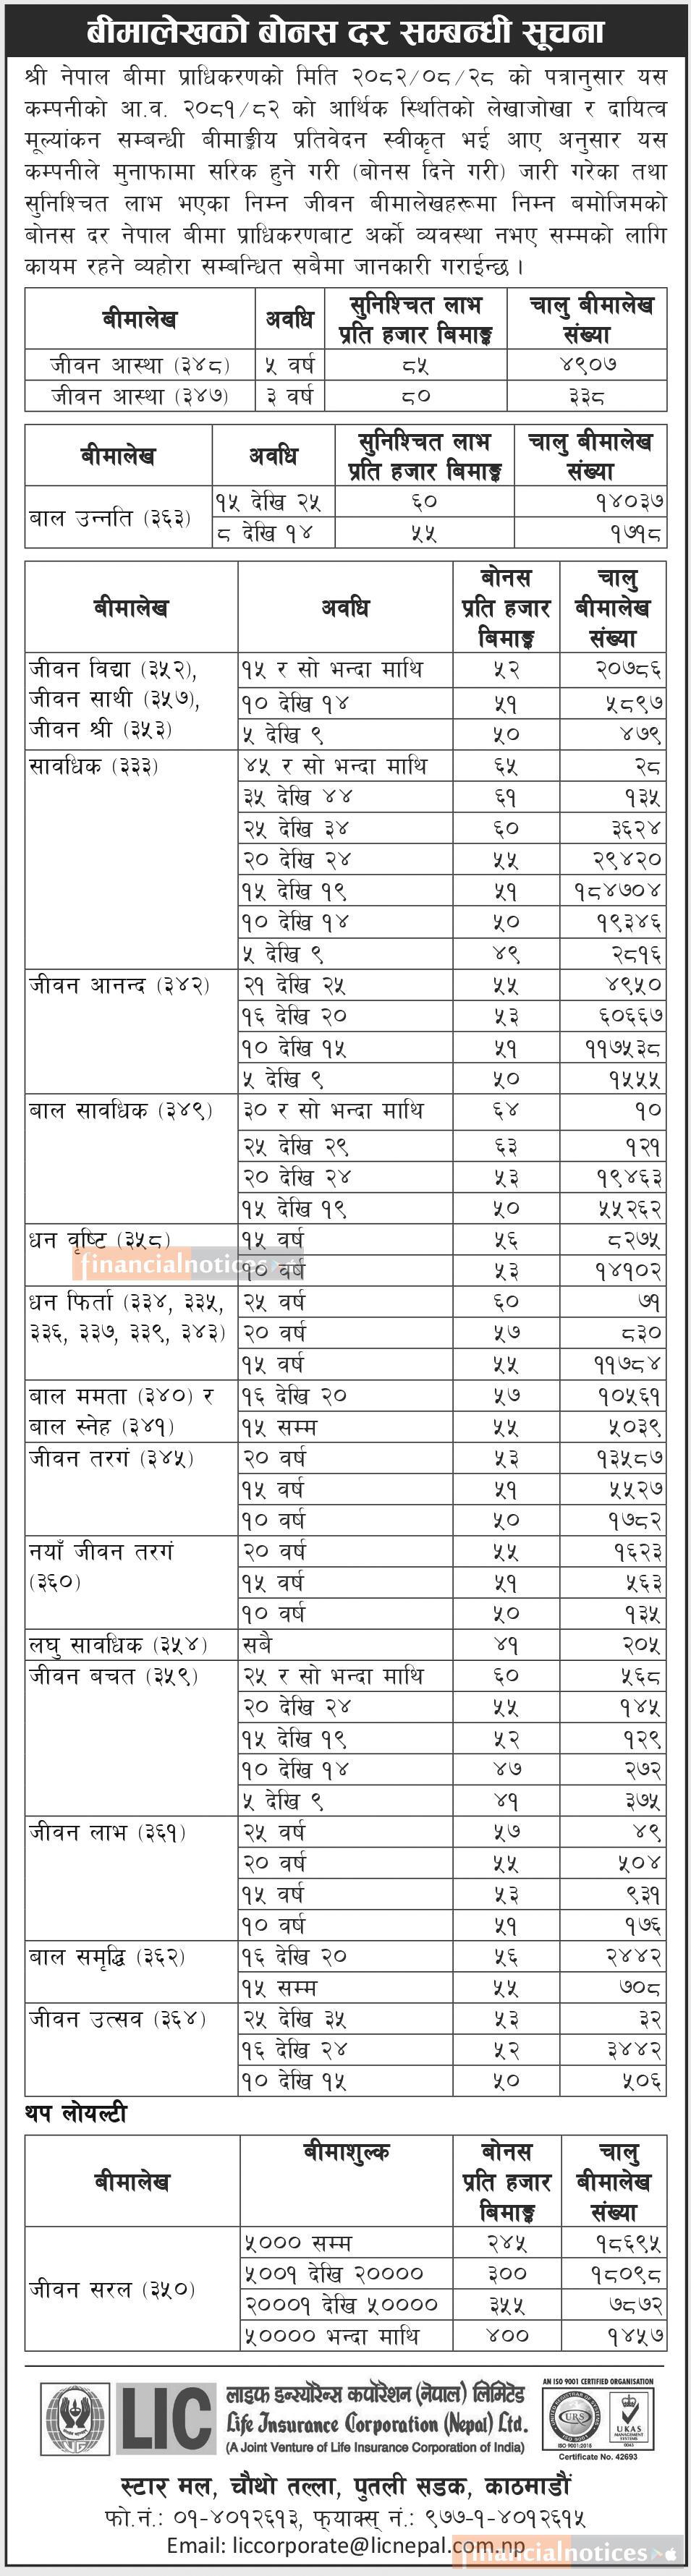 बीमालेखको बोनस दर सम्बन्धी सूचना
श्री नेपाल बीमा प्राधिकरणको मिति २०८२/०८/२८ को पत्रानुसार यस
कम्पनीको आ.व. २०८१/८२ को आर्थिक स्थितिको लेखाजोखा र दायित्व
मूल्यांकन सम्बन्धी बीमाङ्कीय प्रतिवेदन स्वीकृत भई आए अनुसार यस
कम्पनीले मुनाफामा सरिक हुने गरी (बोनस दिने गरी) जारी गरेका तथा
सुनिश्चित लाभ भएका निम्न जीवन बीमालेखहरूमा निम्न बमोजिमको
बोनस दर नेपाल बीमा प्राधिकरणबाट अर्को व्यवस्था नभए सम्मको लागि
कायम रहने व्यहोरा सम्बन्धित सबैमा जानकारी गराईन्छ ।
बीमालेख अवधि सुनिश्चत लाभ प्रति हजार बिमाङ्क चालु बीमालेख संख्या
जीवन आस्था (३४८) ५ वर्ष ८५ ४९०७
जीवन आस्था (३४७) ३ वर्ष ८० ३३८
बीमालेख अवधि सुनिश्चित लाभ प्रति हजार बिमाङ्क चालु बीमालेख संख्या
बाल उन्नति (३६३) १५ देखि २५ ६० १४०३७
८ देखि १४ ५५ १७१८
बीमालेख अवधि बोनस प्रति हजार बिमाङ्क चालु बीमालेख संख्या
जीवन विद्या (३५२), १५ र सो भन्दा माथि ५२ २०७८६
जीवन साथी (३५७), १० देखि १४ ५१ ५८९७
जीवन श्री (३५३) ५ देखि ९ ५० ४७९
सावधिक (३३३) ४५ र सो भन्दा माथि ६५ २८
३५ देखि ४४ ६१ १३५
२५ देखि ३४ ६० ३६२४
२० देखि २४ ५५ २९४२०
१५ देखि १९ ५१ १८४७०४
१० देखि १४ ५० १९३४६
५ देखि ९ ४९ २८१६
जीवन आनन्द (३४२) २१ देखि २५ ५५ ४९५०
१६ देखि २० ५३ ६०६६७
१० देखि १५ ५१ ११७५३८
५ देखि ९ ५० १५५५
बाल सावधिक (३४९) ३० र सो भन्दा माथि ६४ १०
२५ देखि २९ ६३ १२१
२० देखि २४ ५३ १९४६३
१५ देखि १९ ५० ५५२६२
धन वृष्टि (३५८) १५ वर्ष ५६ ८२७५
financialnotices
१० वर्ष ५३ १४१०२
धन फिर्ता (३३४, ३३५, २५ वर्ष ६० ७१
३३६, ३३७, ३३९, ३४३) २० वर्ष ५७ ८३०
१५ वर्ष ५५ ११७८४
बाल ममता (३४०) र १६ देखि २० ५७ १०५६१
बाल स्नेह (३४१) १५ सम्म ५५ ५०३९
जीवन तरगं (३४५) २० वर्ष ५३ १३५८७
१५ वर्ष ५१ ५५२७
१० वर्ष ५० १७८२
नयाँ जीवन तरगं २० वर्ष ५५ १६२३
(३६०) १५ वर्ष ५१ ५६३
१० वर्ष ५० १३५
लघु सावधिक (३५४) सबै ४१ २०५
जीवन बचत (३५९) २५ र सो भन्दा माथि ६० ५६८
२० देखि २४ ५५ १४५
१५ देखि १९ ५२ १२९
१० देखि १४ ४७ २७२
५ देखि ९ ४१ ३७५
जीवन लाभ (३६१) २५ वर्ष ५७ ४९
२० वर्ष ५५ ५०४
१५ वर्ष ५३ ९३१
१० वर्ष ५१ १७६
बाल समृद्धि (३६२) १६ देखि २० ५६ २४४२
१५ सम्म ५५ ७०८
जीवन उत्सव (३६४) २५ देखि ३५ ५३ ३२
१६ देखि २४ ५२ ३४४२
१० देखि १५ ५० ५०६
थप लोयल्टी
बीमालेख बीमाशुल्क बोनस प्रति हजार बिमाङ्क चालु बीमालेख संख्या
जीवन सरल (३५०) ५००० सम्म २४५ १८६९५
५००१ देखि २०००० ३०० १८०९८
२०००१ देखि ५०००० ३५५ ७८७२
५०००० भन्दा माथि ४०० १४५७
LIC
लाइफ इन्स्योरेन्स कर्पोरेशन (नेपाल) लिमिटेड
Life Insurance Corporation (Nepal) Ltd.
(A Joint Venture of Life Insurance Corporation of India)
AN ISO 9001 CERTIFIED ORGANISATION
URS
ISO 9001:2015
UKAS
MANAGEMENT SYSTEMS
0043
Certificate No. 42693
स्टार मल, चौथो तल्ला, पुतली सडक, काठमाडौं
फो.नं.: ०१-४०१२६१३, फ्याक्स् नं.: ९७७-१-४०१२६१५
Email: liccorporate@licnepal.com.np
financialnotices